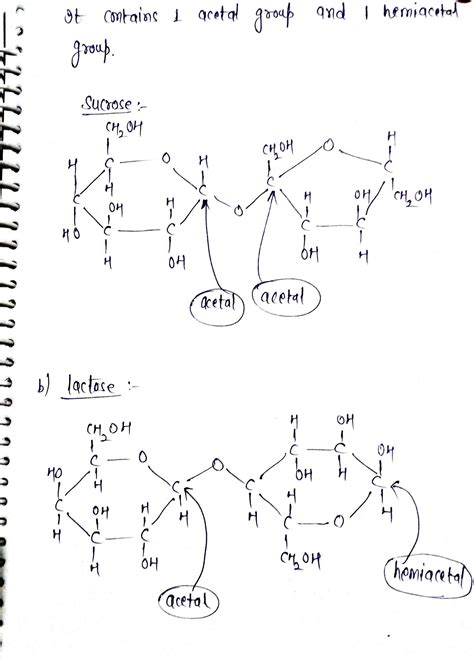 It contains 1 acetal group and 1 hemiacetal
group.
Sucrose :-
CH2OH
H C O H
CH2OH O H
C H C C C
H C OH H C O H OH C CH2OH
HO C C C C
H OH OH H
acetal acetal
b) lactose :-
CH2OH H OH
C O O C C OH
HO H C C OH H C
C OH H H H H
H C C H C O
H OH CH2OH
acetal hemiacetal